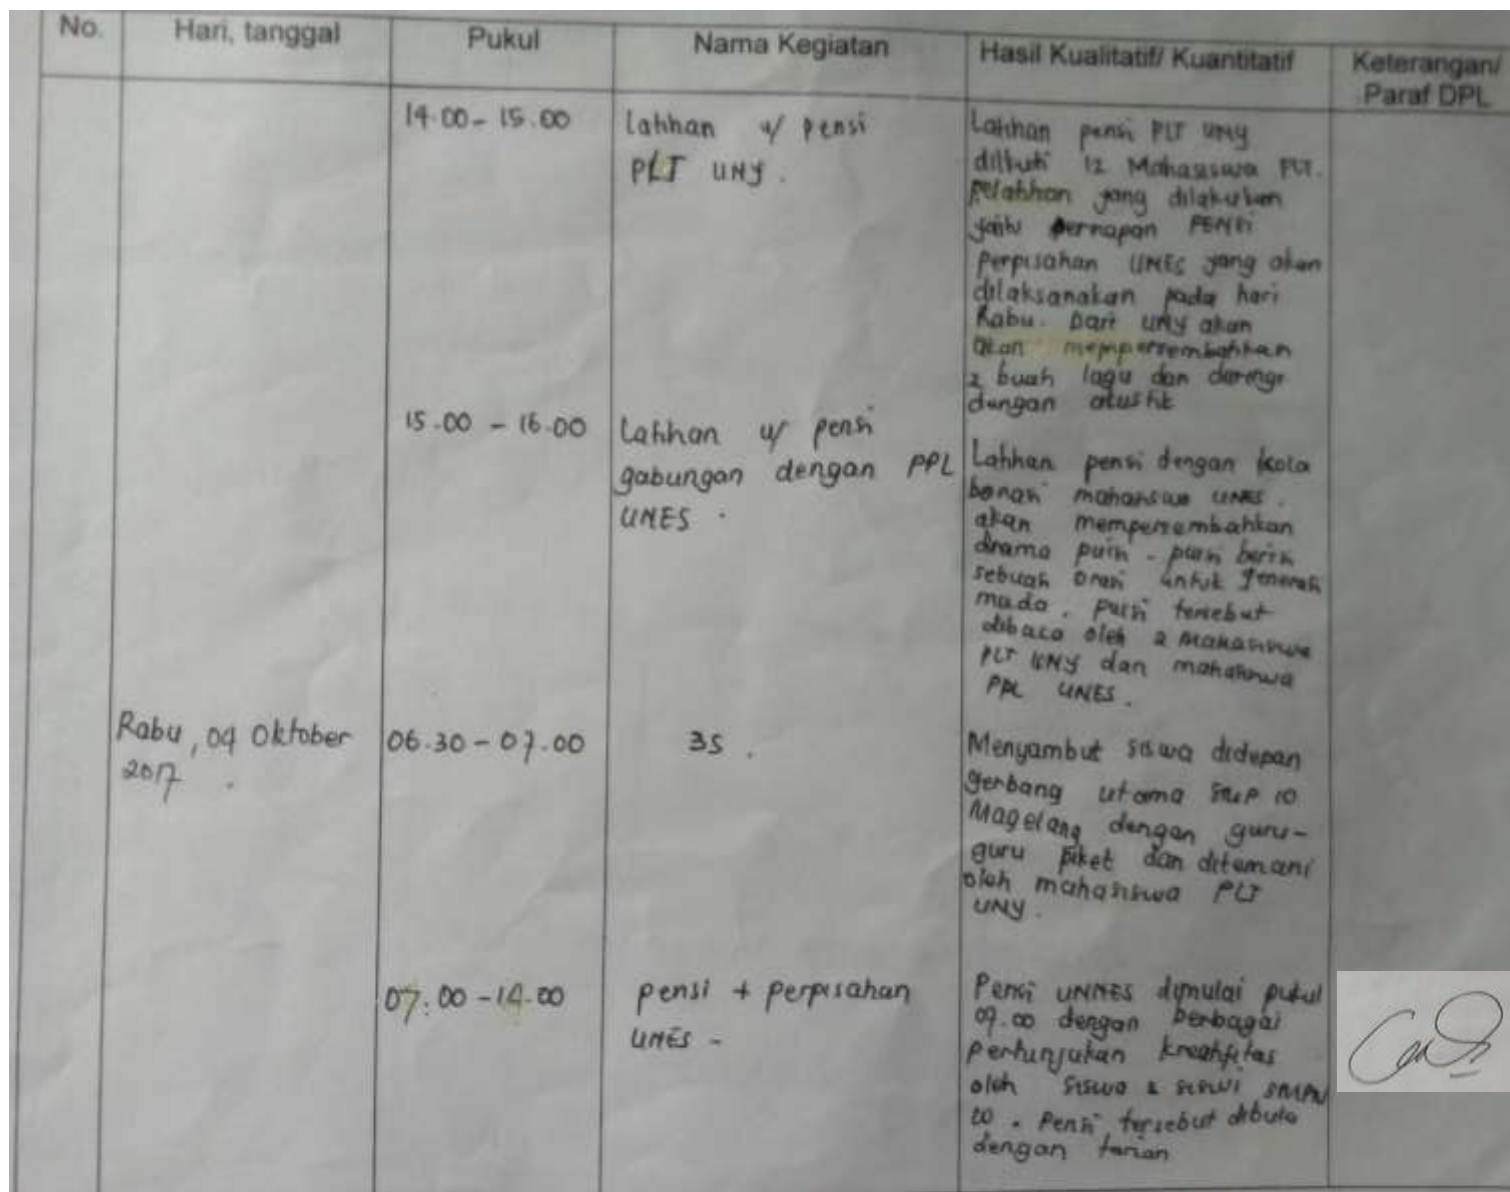 No.
Hari, tanggal
Pukul
Nama Kegiatan
Hasil Kualitatif/ Kuantitatif
Keterangan/
Paraf DPL
14.00 - 15.00
Latihan u/ pensi
PLT UNY.
Latihan pensi PLT UNY
diikuti 12 Mahasiswa PLT.
Pelatihan yang dilakukan
yaitu PENSI
perpisahan UNES yang akan
dilaksanakan pada hari
Rabu. Dari UNY akan
akan mempersembahkan
2 buah lagu dan
dengan akustik
15.00 - 16.00
Latihan u/ pensi
gabungan dengan PPL
UNES.
Latihan pensi dengan kola
borasi mahasiswa UNES.
akan mempersembahkan
drama puisi - puisi berisi
sebuah orasi untuk generasi
muda. puisi tersebut
dibaca oleh 2 mahasiswa
PLT UNY dan mahasiswa
PPL UNES.
Rabu, 04 Oktober
2017.
06.30 - 07.00
3S.
Menyambut siswa didepan
gerbang utama SMP 10
Magelang dengan guru-
guru piket dan ditemani
oleh mahasiswa PLT
UNY.
07.00 - 14.00
pensi + perpisahan
UNES -
Pensi UNNES dimulai pukul
09.00 dengan berbagai
pertunjukan kreatifitas
oleh siswa & siswi SMPN
10. Pensi tersebut dibuka
dengan tarian